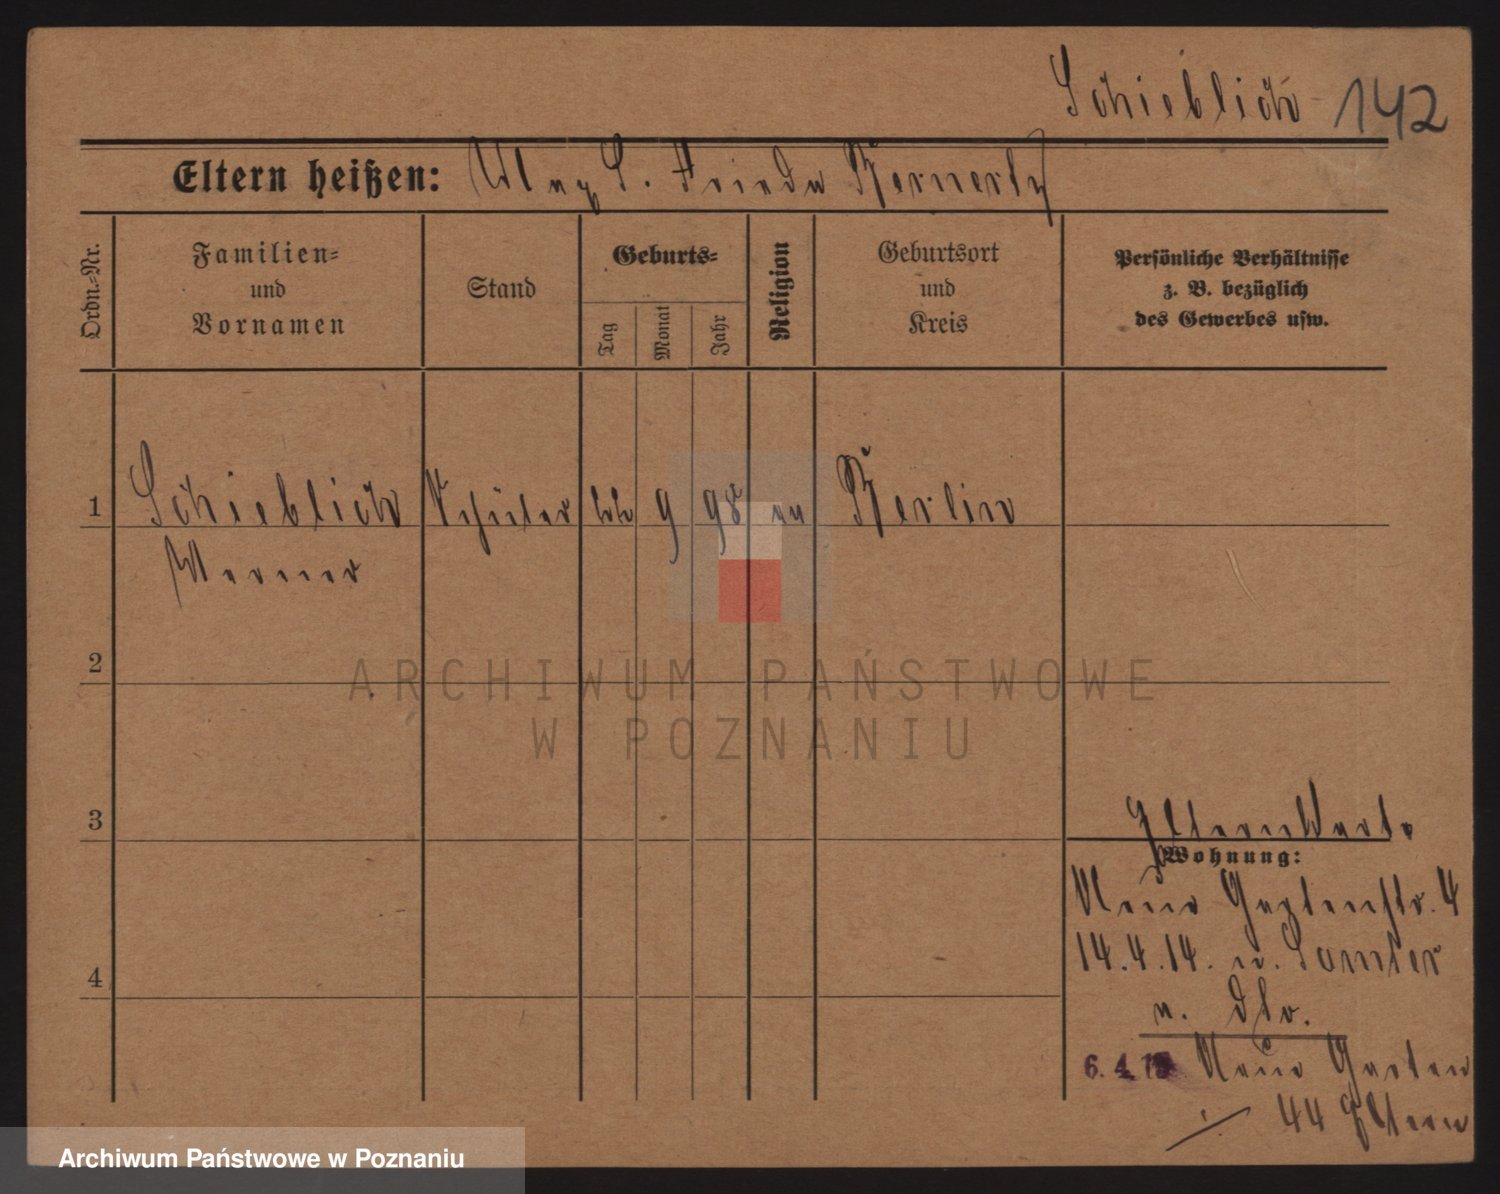 Schieblich 142
Eltern heißen: S. Frieda
Ordn.=Nr.
Familien=
und
Vornamen
Stand
Geburts=
Tag
Monat
Jahr
Religion
Geburtsort
und
Kreis
Persönliche Verhältnisse
z. B. bezüglich
des Gewerbes usw.
1 Schieblich Schüler 9 98 Berlin
Werner
2
3
4
Wohnung:
Neue Gartenstr. 4
14.4.14. n. Samter
n. dto.
6. 4. Neue Garten
44 Eltern
ARCHIWUM PAŃSTWOWE
W POZNANIU
Archiwum Państwowe w Poznaniu